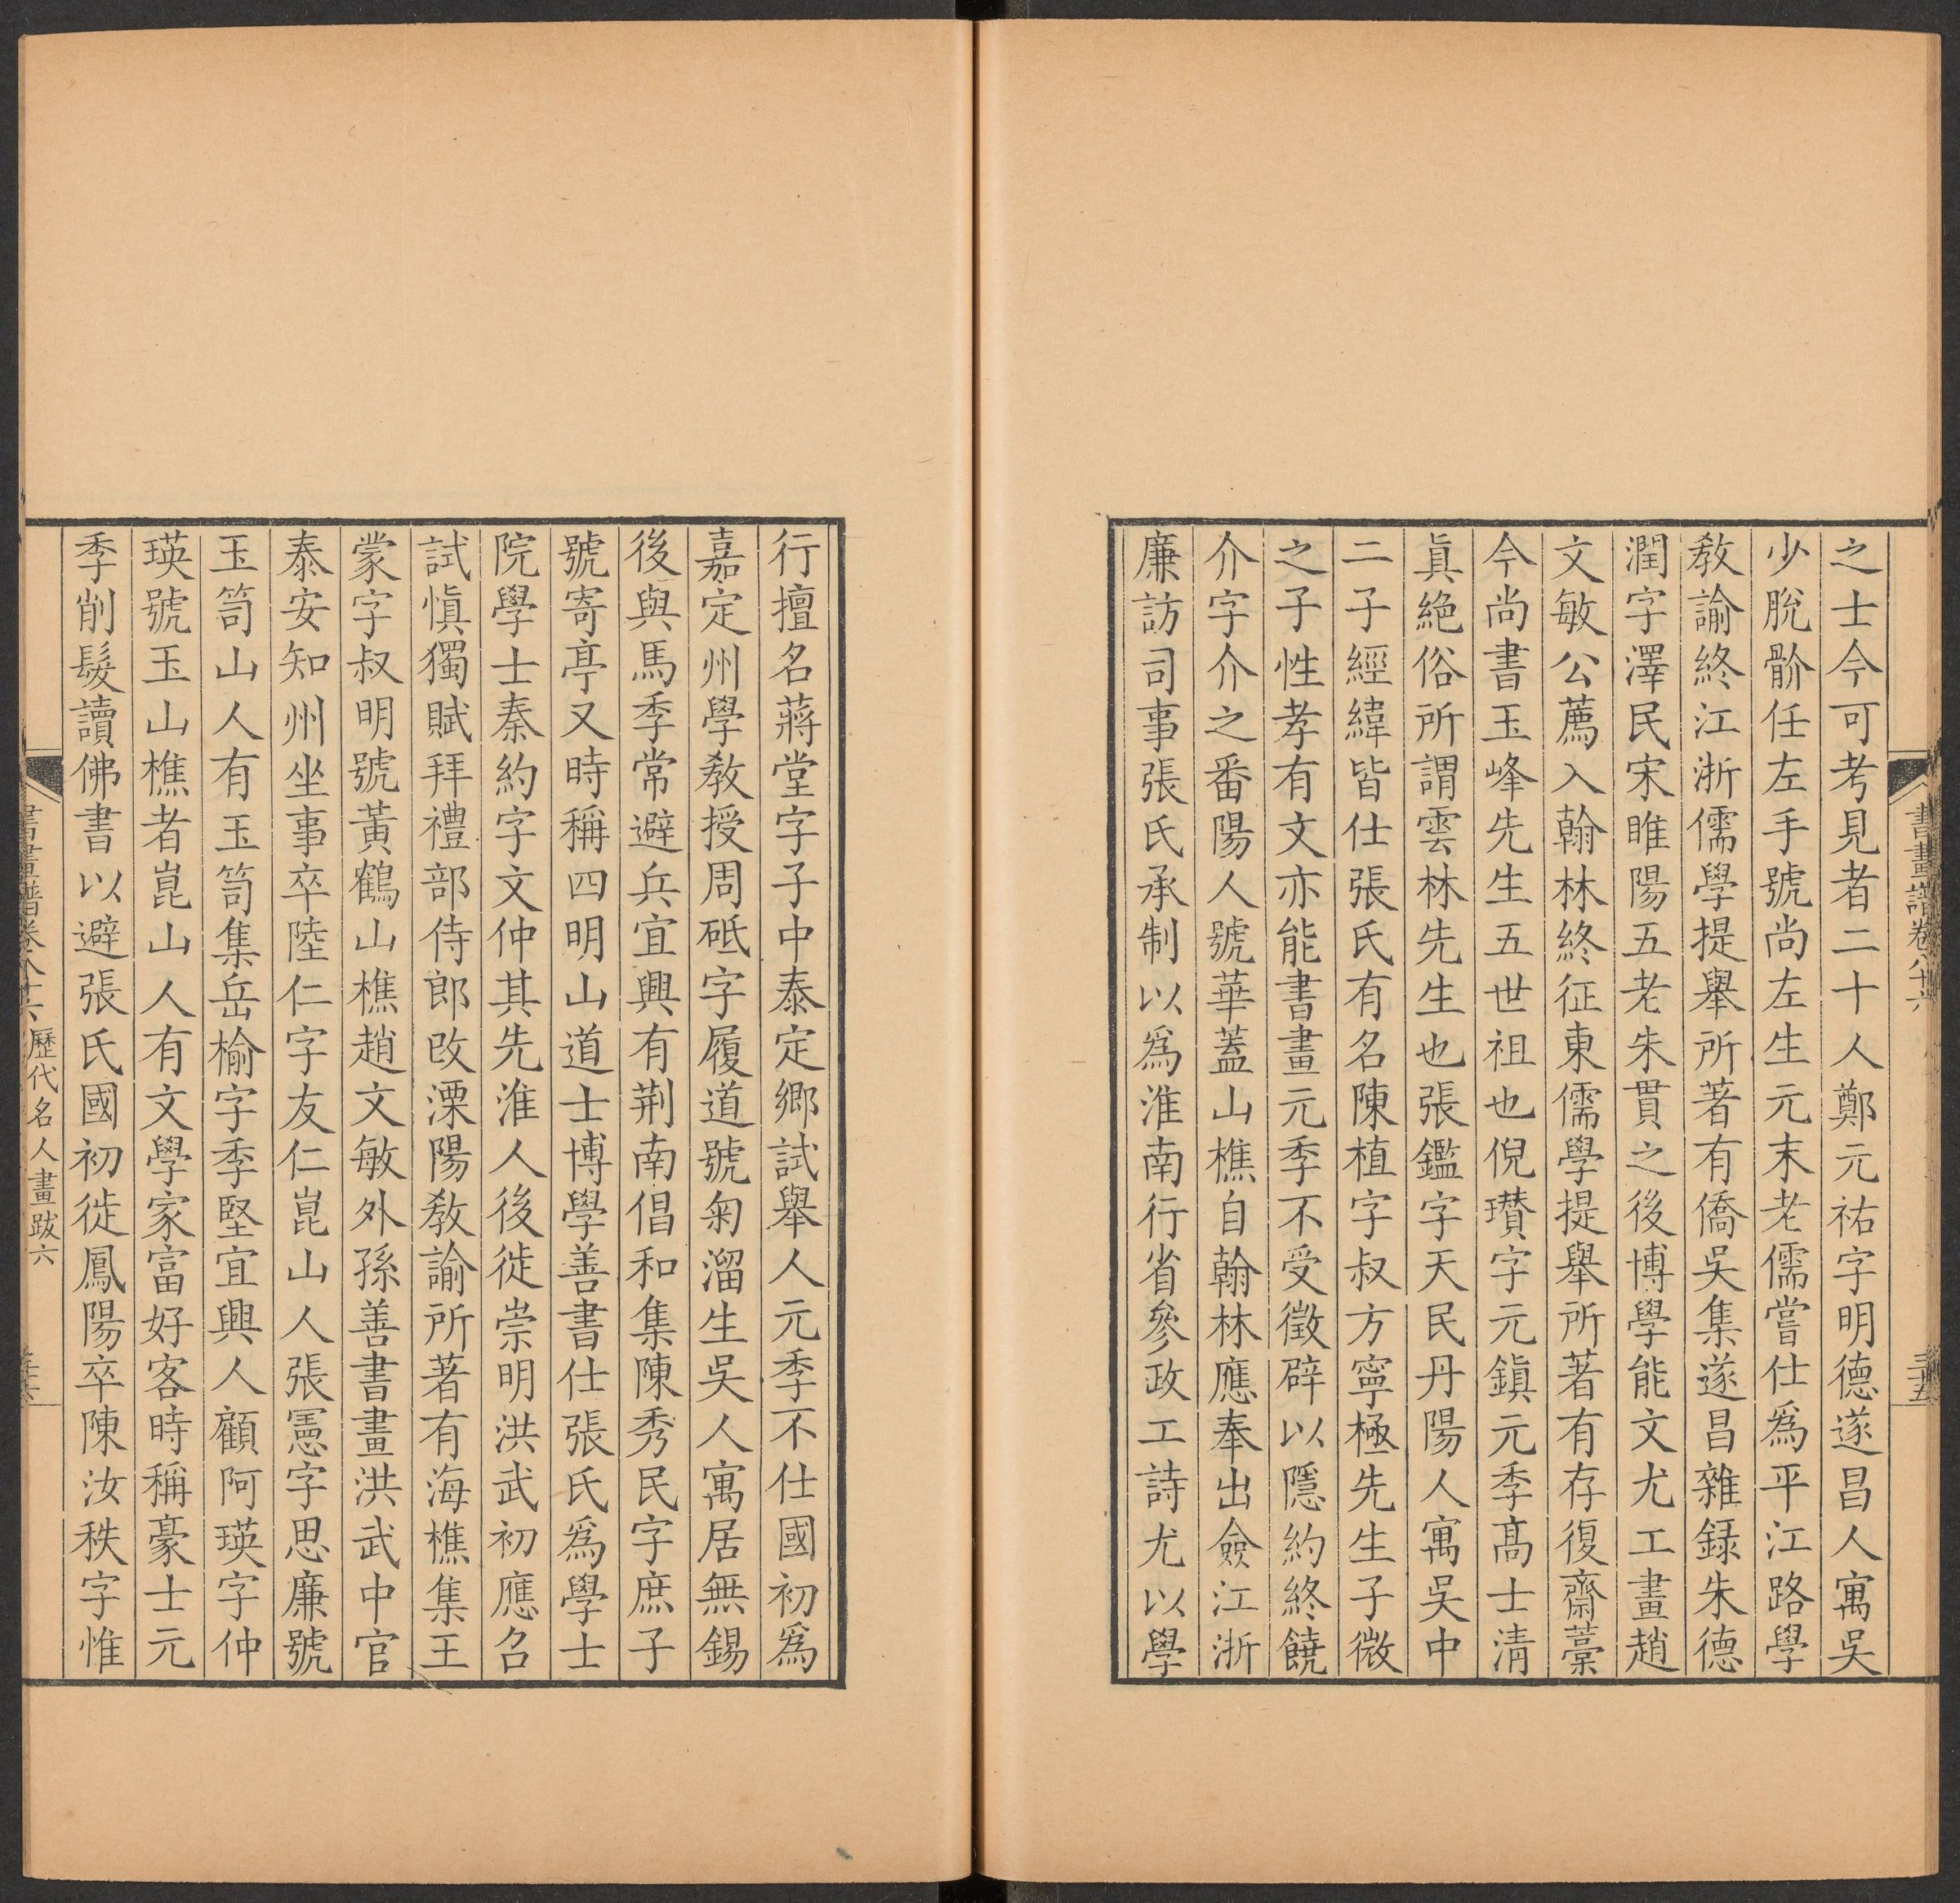 書畫譜卷八十六
三十五
之士今可考見者二十人鄭元祐字明德遂昌人寓吳
少脫骱任左手號尚左生元末老儒嘗仕爲平江路學
敎諭終江浙儒學提舉所著有僑吳集遂昌雜録朱德
潤字澤民宋睢陽五老朱貫之後博學能文尤工畫趙
文敏公薦入翰林終征東儒學提舉所著有存復齋藁
今尚書玉峰先生五世祖也倪瓚字元鎮元季高士清
眞絕俗所謂雲林先生也張鑑字天民丹陽人寓吳中
二子經緯皆仕張氏有名陳植字叔方寧極先生子微
之子性孝有文亦能書畫元季不受徵辟以隱約終饒
介字介之番陽人號華蓋山樵自翰林應奉出僉江浙
廉訪司事張氏承制以爲淮南行省參政工詩尤以學
行擅名蔣堂字子中泰定鄉試舉人元季不仕國初爲
嘉定州學敎授周砥字履道號匊溜生吳人寓居無錫
後與馬季常避兵宜興有荆南倡和集陳秀民字庶子
號寄亭又時稱四明山道士博學善書仕張氏爲學士
院學士秦約字文仲其先淮人後徙崇明洪武初應召
試愼獨賦拜禮部侍郎改溧陽敎諭所著有海樵集王
蒙字叔明號黃鶴山樵趙文敏外孫善書畫洪武中官
泰安知州坐事卒陸仁字友仁崑山人張憲字思廉號
玉笥山人有玉笥集岳榆字季堅宜興人顧阿瑛字仲
瑛號玉山樵者崑山人有文學家富好客時稱豪士元
季削髮讀佛書以避張氏國初徙鳳陽卒陳汝秩字惟
書畫譜卷八十六 歷代名人畫跋六